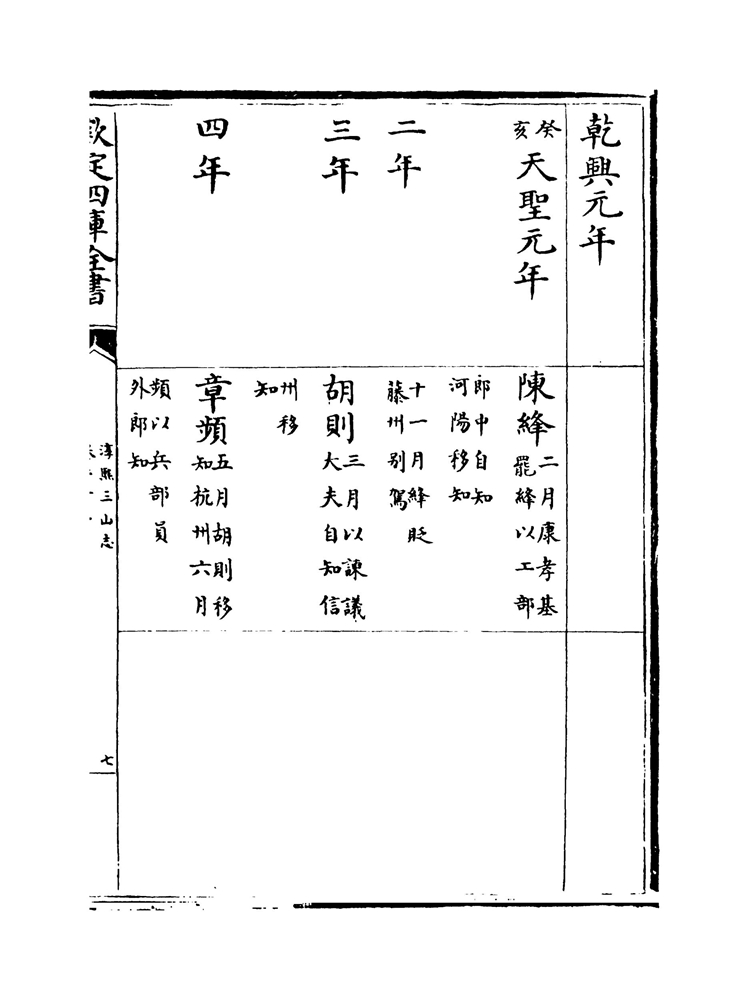 乾興元年
癸亥天聖元年
陳絳二月康孝基
罷絳以工部
郎中自知
河陽移知
二年
十一月絳貶
藤州别駕
三年
胡則三月以諫議
大夫自知信
州移
知
四年
章頻五月胡則移
知杭州六月
頻以兵部員
外郎知
欽定四庫全書
淳熙三山志
七